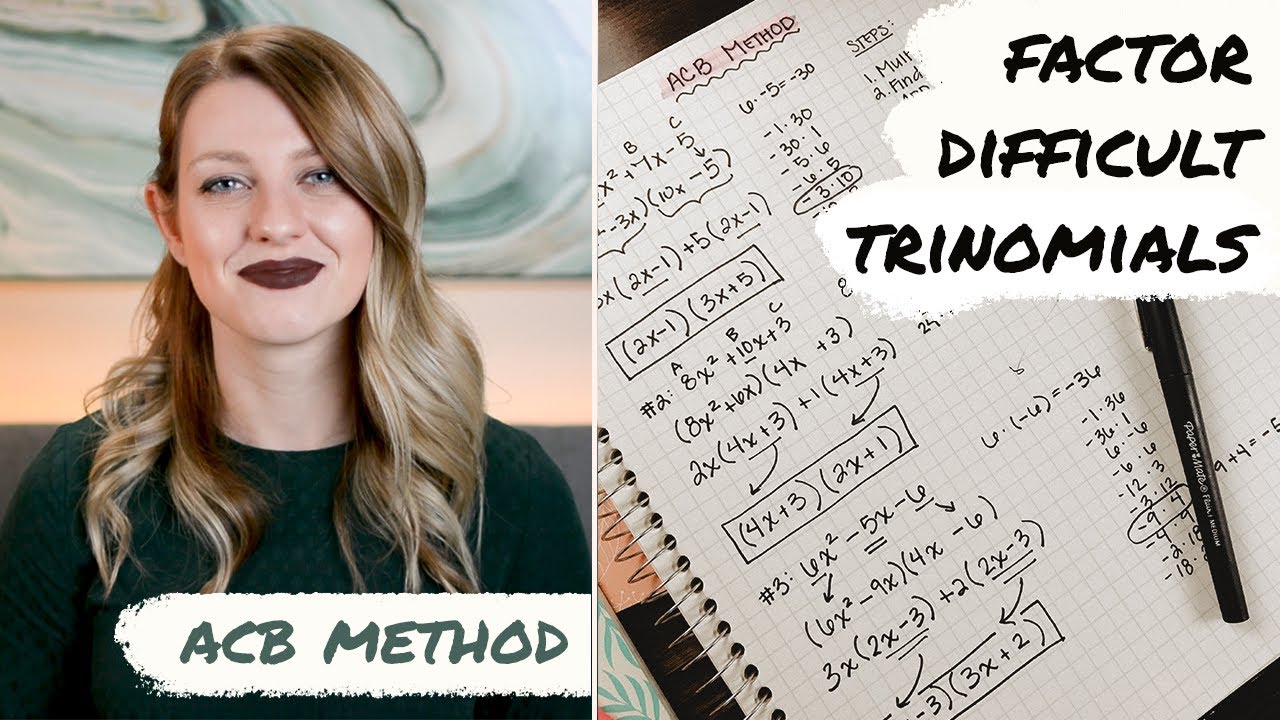 FACTOR
DIFFICULT
TRINOMIALS
ACB METHOD
ACB METHOD
STEPS:
1. Mult
2. Find
6·-5=-30
-1·30
-30·1
-5·6
-6·5
-3·10
B C
x² + 7x - 5
-3x)(10x - 5)
x(2x-1)+5(2x-1)
(2x-1)(3x+5)
A B C
#2: 8x² + 10x + 3
(8x² + 6x)(4x + 3)
2x(4x+3) + 1(4x+3)
(4x+3)(2x+1)
24
6·(-6) = -36
-1·36
-36·1
6·-6
-6·6
-12·3
-3·12
-9·4
-4·9
-2·18
-18·
9+4=-5
#3: 6x² - 5x - 6
(6x² - 9x)(4x - 6)
3x(2x-3) + 2(2x-3)
-3)(3x+2)
Paper Mate® Flair / MEDIUM